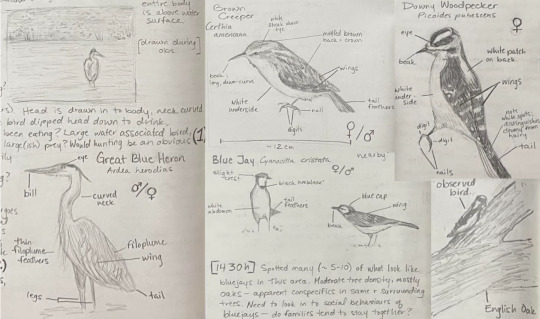 entire body
is above water
surface.
[drawn during
obs
Head is drawn in to body, neck curved
bird dipped head down to drink.
been eating? Large water associated bird,
large(ish) prey? Would hunting be an obvious
Great Blue Heron
Ardea herodias
eye
bill
curved
neck
♂/♀
thin
filoplume
feathers
filoplume
wing
legs
tail
Brown
Creeper
Certhia
americana
white
streak over
eye
mottled brown
back + crown
beak:
long, down-curve
wings
white
underside
nail
digit
tail
feathers
♀/♂
~12cm
Blue Jay Cyanocitta cristata
nearby
♀/♂
slight
crest
black "necklace"
white
abdomen
tail
feathers
blue cap
wing
beak
[1430h] Spotted many (~5-10) of what look like
bluejays in this area. Moderate tree density, mostly
oaks - apparent conspecifics in same + surrounding
trees. Need to look in to social behaviours of
bluejays - do families tend to stay together?
Downy Woodpecker
Picoides pubescens
♀
eye
beak
white patch
on back
wings
white
under-
side
digit
nails
tail
observed
bird
English Oak